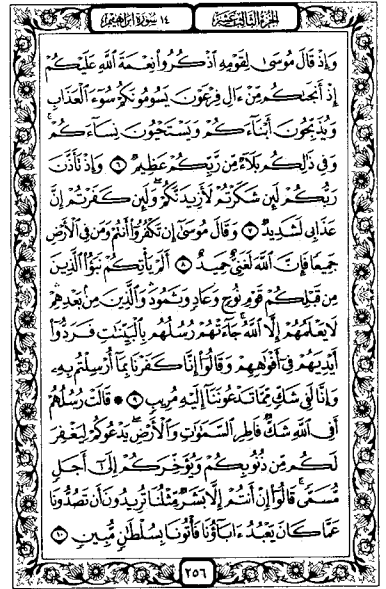 الجزء الثالث عشر ١٤ سورة إبراهيم
وَإِذْ قَالَ مُوسَىٰ لِقَوْمِهِ اذْكُرُوا نِعْمَةَ اللَّهِ عَلَيْكُمْ
إِذْ أَنجَىٰكُم مِّنْ ءَالِ فِرْعَوْنَ يَسُومُونَكُمْ سُوٓءَ الْعَذَابِ
وَيُذَبِّحُونَ أَبْنَآءَكُمْ وَيَسْتَحْيُونَ نِسَآءَكُمْ ۚ
وَفِي ذَٰلِكُم بَلَآءٌ مِّن رَّبِّكُمْ عَظِيمٌ ٦ وَإِذْ تَأَذَّنَ
رَبُّكُمْ لَئِن شَكَرْتُمْ لَأَزِيدَنَّكُمْ ۖ وَلَئِن كَفَرْتُمْ إِنَّ
عَذَابِي لَشَدِيدٌ ٧ وَقَالَ مُوسَىٰ إِن تَكْفُرُوٓا أَنتُمْ وَمَن فِي الْأَرْضِ
جَمِيعًا فَإِنَّ اللَّهَ لَغَنِيٌّ حَمِيدٌ ٨ أَلَمْ يَأْتِكُمْ نَبَؤُا الَّذِينَ
مِن قَبْلِكُمْ قَوْمِ نُوحٍ وَعَادٍ وَثَمُودَ ۛ وَالَّذِينَ مِن بَعْدِهِمْ ۛ
لَا يَعْلَمُهُمْ إِلَّا اللَّهُ ۚ جَآءَتْهُمْ رُسُلُهُم بِالْبَيِّنَٰتِ فَرَدُّوٓا
أَيْدِيَهُمْ فِيٓ أَفْوَٰهِهِمْ وَقَالُوٓا إِنَّا كَفَرْنَا بِمَآ أُرْسِلْتُم بِهِ
وَإِنَّا لَفِي شَكٍّ مِّمَّا تَدْعُونَنَآ إِلَيْهِ مُرِيبٍ ٩ ۞ قَالَتْ رُسُلُهُمْ
أَفِي اللَّهِ شَكٌّ فَاطِرِ السَّمَٰوَٰتِ وَالْأَرْضِ ۖ يَدْعُوكُمْ لِيَغْفِرَ
لَكُم مِّن ذُنُوبِكُمْ وَيُؤَخِّرَكُمْ إِلَىٰٓ أَجَلٍ
مُّسَمًّى ۚ قَالُوٓا إِنْ أَنتُمْ إِلَّا بَشَرٌ مِّثْلُنَا تُرِيدُونَ أَن تَصُدُّونَا
عَمَّا كَانَ يَعْبُدُ ءَابَآؤُنَا فَأْتُونَا بِسُلْطَٰنٍ مُّبِينٍ ١٠
٢٥٦